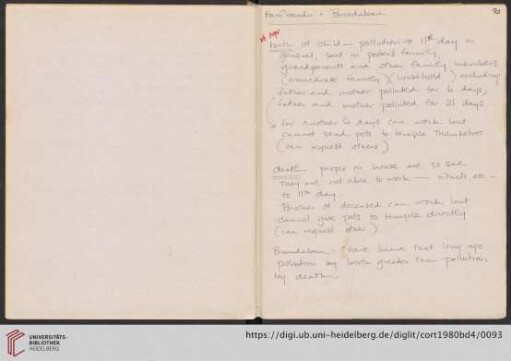 90
birth of child - pollution → 11th day in
general, but in potters family,
grandparents and other family members
(immediate family) (household) excluding
father and mother polluted for 6 days;
father and mother polluted for 21 days
for another 6 days can work but
cannot send pots to temple themselves
(can request others)
death people in house are so sad
They are not able to work — rituals etc —
to 11th day
Brother of deceased can work but
cannot give pots to temple directly
(can request other)
have heard that long ago
pollution by birth greater than pollution
by death.
UNIVERSITÄTS-
BIBLIOTHEK
HEIDELBERG
https://digi.ub.uni-heidelberg.de/diglit/cort1980bd4/0093